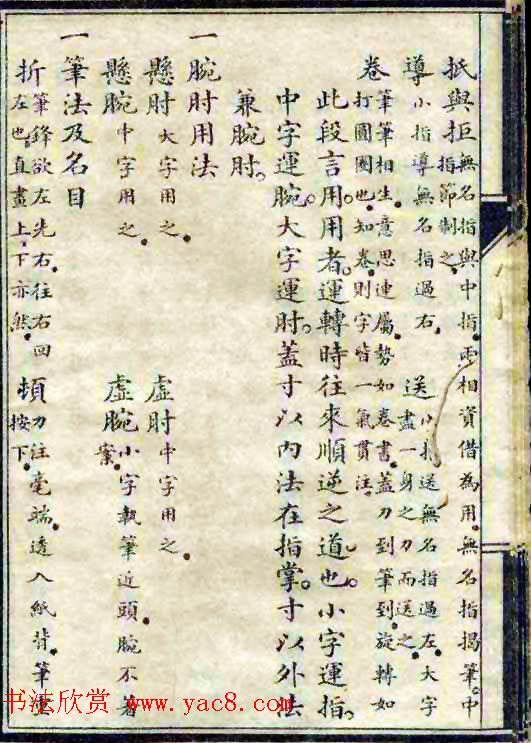 抵與拒 無名指與中指。兩相資借為用。無名指揭筆。中
指節制之。
導 小指導無名指過右。 送 小指送無名指過左。大字
盡一身之力而送之。
卷 筆筆相生。意思連屬。勢如卷書。蓋力到筆到。旋轉如
打圓圈也。知卷。則字皆一氣貫注。
此段言用。用者。運轉時往來順逆之道也。小字運指。
中字運腕。大字運肘。蓋寸以內法在指掌。寸以外法
兼腕肘。
一腕肘用法
懸肘 大字用之。 虛肘 中字用之。
懸腕 中字用之。 虛腕 小字執筆近頭。腕不著
案。
一筆法及名目
折 筆鋒欲左先右。往右回
左也。直畫上下亦然。
頓 力注毫端。透入紙背。筆重
按下。
书法欣赏 www.yac8.com